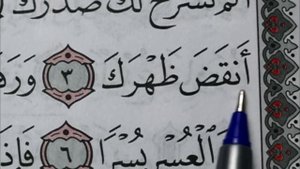 ألم نشرح لك صدرك
أَنقَضَ ظَهْرَكَ ٣
الْعُسْرِ يُسْرًا ٦